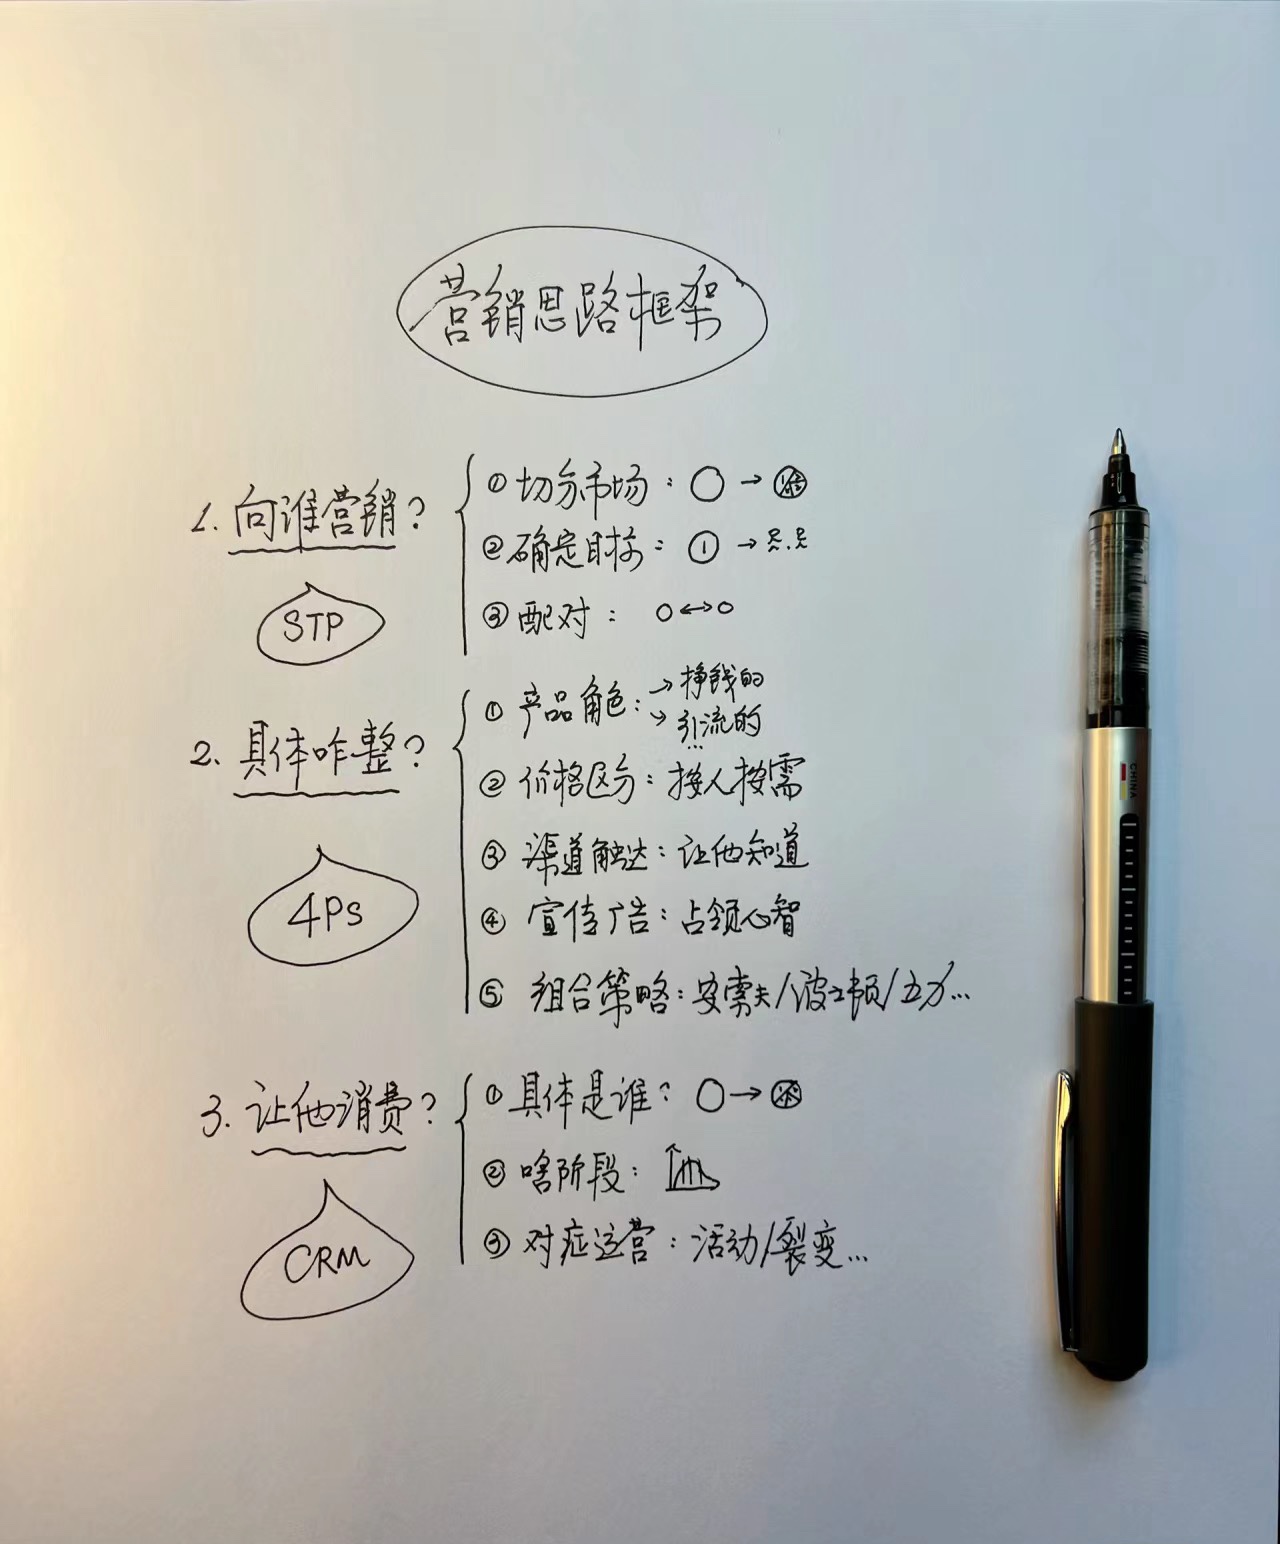 营销思路框架
1. 向谁营销?
STP
① 切分市场: ○→
② 确定目标: ①→
③ 配对: ○↔○
2. 具体咋整?
4PS
① 产品角色: →挣钱的
→引流的
② 价格区分: 按人按需
③ 渠道触达: 让他知道
④ 宣传广告: 占领心智
⑤ 组合策略: 安索夫/波士顿/五力...
3. 让他消费?
CRM
① 具体是谁? ○→
② 啥阶段:
③ 对症运营: 活动/裂变...
CHINA